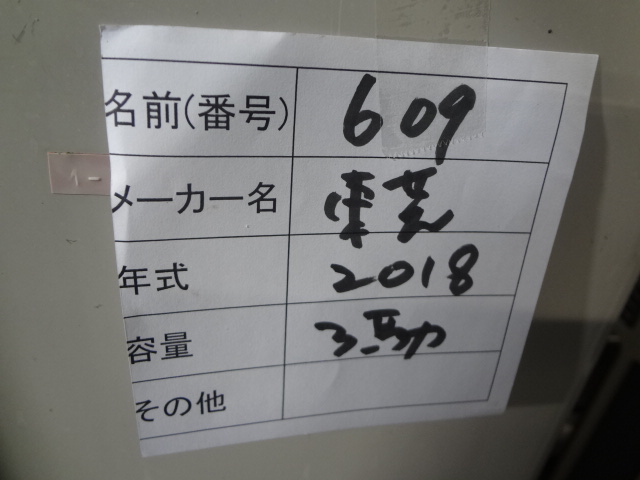 名前(番号) 609
メーカー名 東芝
年式 2018
容量 3馬力
その他
1-